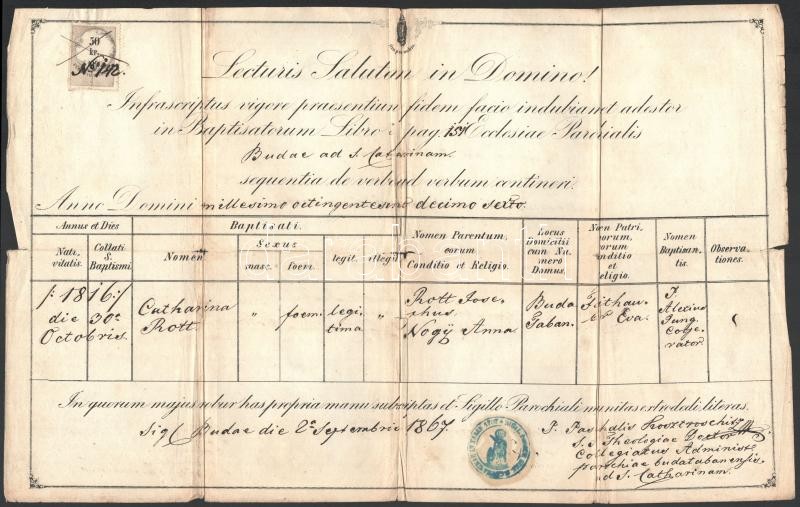 50
kr.
No 142.
Lecturis Salutem in Domino!
Infrascriptus vigore praesentium fidem facio indubiam et adestor
in Baptisatorum Libro pag. 151 Ecclesiae Parochialis
Budae ad S. Catharinam.
sequentia de verbo ad verbum contineri:
Anno Domini millesimo octingentesimo decimo sexto.
Annus et Dies
Nativitatis.
Collati S. Baptismi.
Baptisati.
Nomen
Sexus
masc.
foem.
legit.
illegit.
Nomen Parentum,
eorum
Conditio et Religio.
Locus
Domicilii
cum Numero
Domus.
Nomen Patrinorum,
eorum
Conditio
et
Religio.
Nomen
Baptisantis.
Observationes.
/: 1816 :/
die 30a
Octobris.
Catharina
Rott
"
foem.
legitima
"
Rott Josephus.
Nogÿ Anna.
Buda
Taban.
Eva.
P.
Alexius
Jung.
Cooperator.
In quorum majus robur has propria manu subscriptas et Sigillo Parochiali munitas extradedi literas.
Sig. Budae die 2a Septembris 1867.
P. Pashalis
S. S. Theologiae Lector
Collegiatus Administ.
parochiae budatabanensis
ad S. Catharinam.